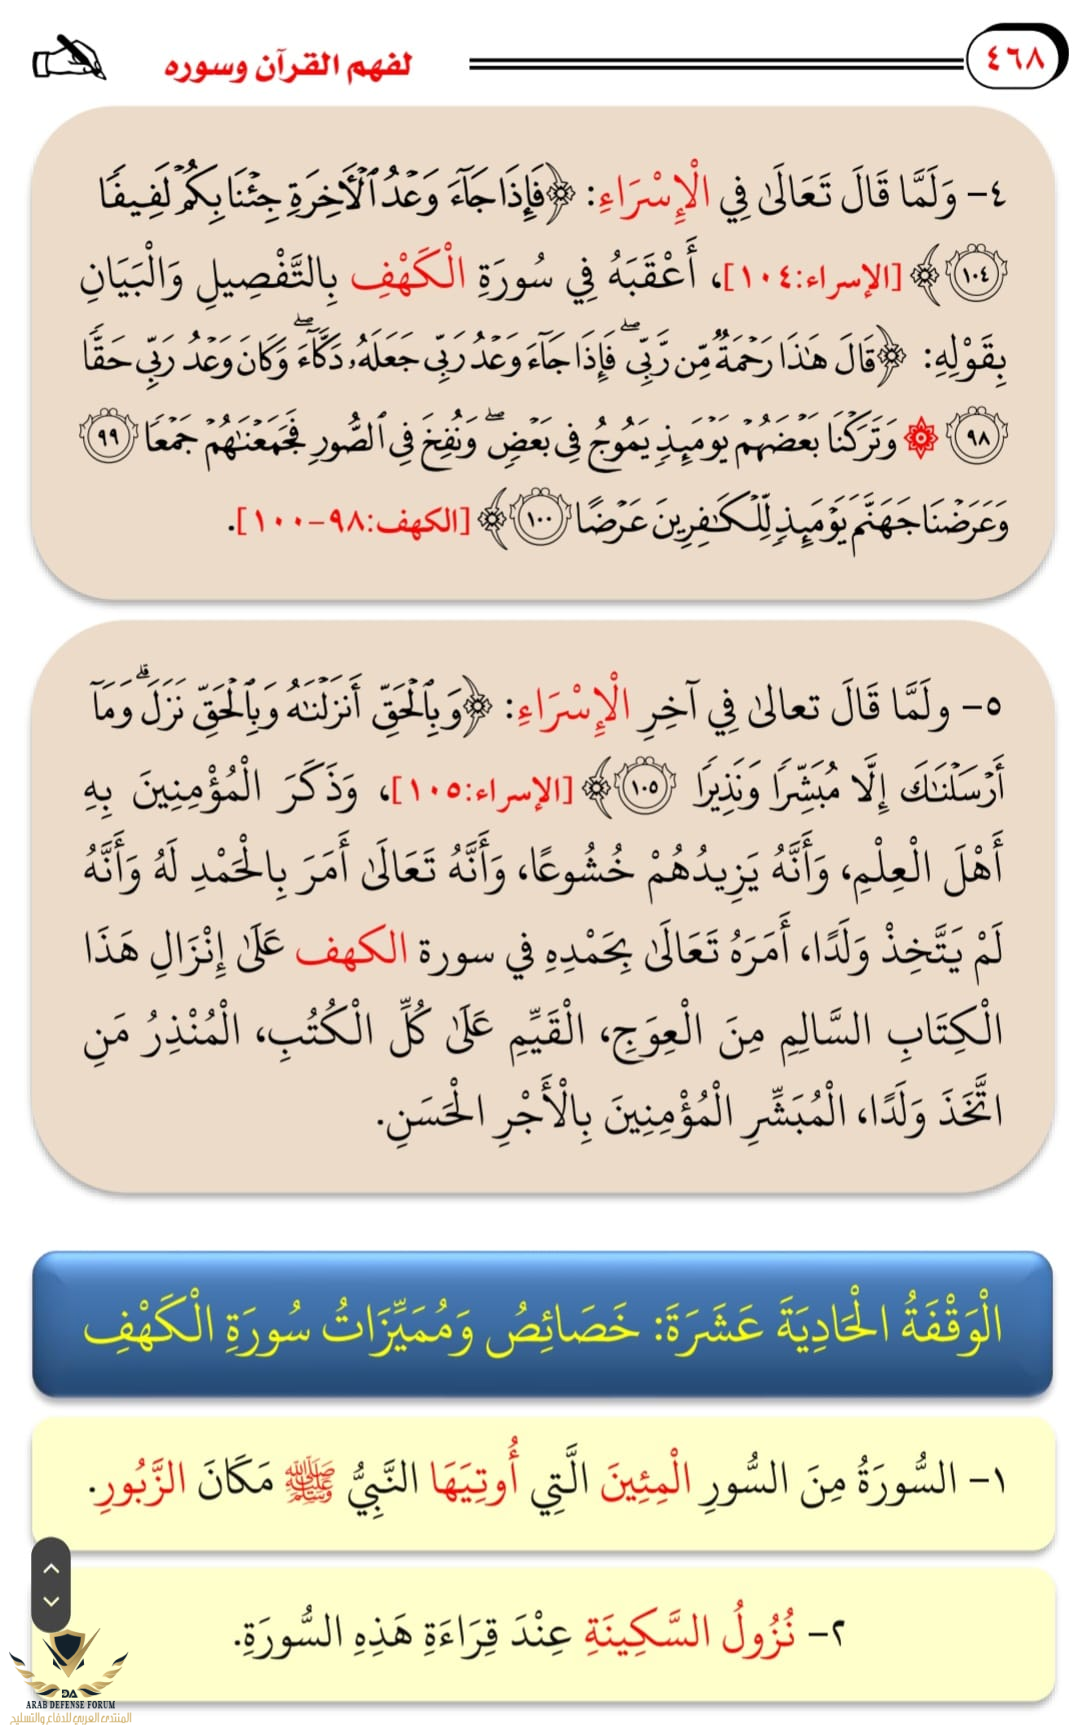 ٤٦٨
لفهم القرآن وسوره
٤- وَلَمَّا قَالَ تَعَالَىٰ فِي الْإِسْرَاءِ: ﴿فَإِذَا جَآءَ وَعۡدُ ٱلۡأٓخِرَةِ جِئۡنَا بِكُمۡ لَفِيفٗا
١٠٤﴾ [الإسراء:١٠٤]، أَعْقَبَهُ فِي سُورَةِ الْكَهْفِ بِالتَّفْصِيلِ وَالْبَيَانِ
بِقَوْلِهِ: ﴿قَالَ هَٰذَا رَحۡمَةٞ مِّن رَّبِّيۖ فَإِذَا جَآءَ وَعۡدُ رَبِّي جَعَلَهُۥ دَكَّآءَۖ وَكَانَ وَعۡدُ رَبِّي حَقّٗا
٩٨ ۞ وَتَرَكۡنَا بَعۡضَهُمۡ يَوۡمَئِذٖ يَمُوجُ فِي بَعۡضٖۖ وَنُفِخَ فِي ٱلصُّورِ فَجَمَعۡنَٰهُمۡ جَمۡعٗا ٩٩
وَعَرَضۡنَا جَهَنَّمَ يَوۡمَئِذٖ لِّلۡكَٰفِرِينَ عَرۡضًا ١٠٠﴾ [الكهف:٩٨-١٠٠].
٥- ولَمَّا قَالَ تعالىٰ فِي آخِرِ الْإِسْرَاءِ: ﴿وَبِٱلۡحَقِّ أَنزَلۡنَٰهُ وَبِٱلۡحَقِّ نَزَلَۗ وَمَآ
أَرۡسَلۡنَٰكَ إِلَّا مُبَشِّرٗا وَنَذِيرٗا ١٠٥﴾ [الإسراء:١٠٥]، وَذَكَرَ الْمُؤْمِنِينَ بِهِ
أَهْلَ الْعِلْمِ، وَأَنَّهُ يَزِيدُهُمْ خُشُوعًا، وَأَنَّهُ تَعَالَىٰ أَمَرَ بِالْحَمْدِ لَهُ وَأَنَّهُ
لَمْ يَتَّخِذْ وَلَدًا، أَمَرَهُ تَعَالَىٰ بِحَمْدِهِ في سورة الكهف عَلَىٰ إِنْزَالِ هَذَا
الْكِتَابِ السَّالِمِ مِنَ الْعِوَجِ، الْقَيِّمِ عَلَىٰ كُلِّ الْكُتُبِ، الْمُنْذِرُ مَنِ
اتَّخَذَ وَلَدًا، الْمُبَشِّرِ الْمُؤْمِنِينَ بِالْأَجْرِ الْحَسَنِ.
الْوَقْفَةُ الْحَادِيَةَ عَشَرَةَ: خَصَائِصُ وَمُمَيِّزَاتُ سُورَةِ الْكَهْفِ
١- السُّورَةُ مِنَ السُّورِ الْمِئِينَ الَّتِي أُوتِيَهَا النَّبِيُّ ﷺ مَكَانَ الزَّبُورِ.
٢- نُزُولُ السَّكِينَةِ عِنْدَ قِرَاءَةِ هَذِهِ السُّورَةِ.
DA
ARAB DEFENSE FORUM
المنتدى العربي للدفاع والتسليح